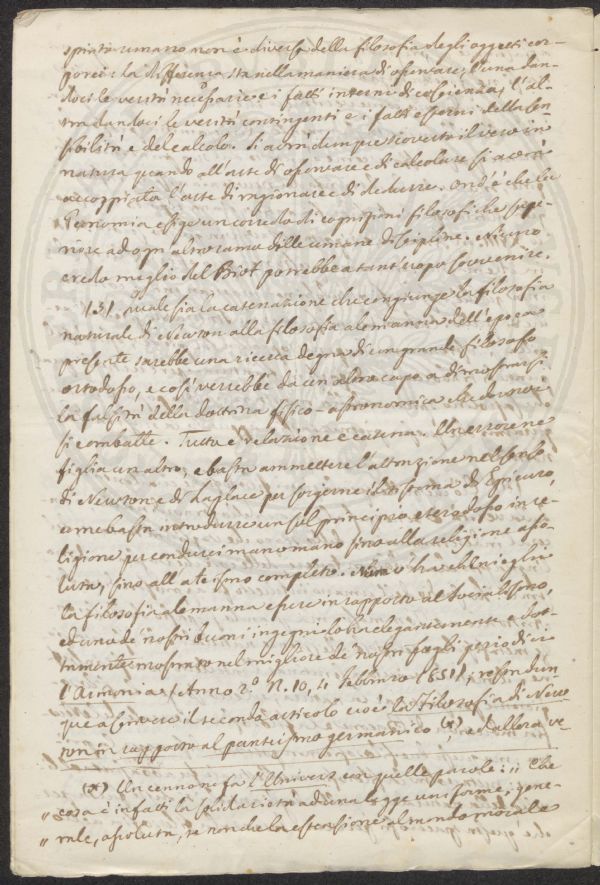 spirito umano non è diversa della filosofia degli oggetti cor-
porei: la differenza sta nella maniera di osservare, l'una dan-
doci le verità necessarie e i fatti interni di coscienza, l'al-
tra dandoci le verità contingenti e i fatti esterni della sen-
sibilità e del calcolo. Si avrà dunque scoverto il vero in
natura quando all'arte di osservare e di calcolare si avrà
accoppiata l'arte di ragionare e di dedurre. Ond'è che la
economia esige un corredo di cognizioni filosofiche supe-
riore ad ogni altro ramo delle umane discipline. Niuno
credo meglio del Biot potrebbe a tant'uopo sovvenire.
Quale sia la catenazione che congiunge la filosofia
naturale di Newton alla filosofia alemanna dell'epoca
presente sarebbe una ricerca degna di un grande filosofo
ortodosso, e così verrebbe da un altro capo a dimostrarsi
la falsità della dottrina fisico-astronomica che da noi
si combatte. Tutto è relazione e catena. Un errore ne
figlia un altro; e basta ammettere l'attrazione nel senso
di Newton e di Laplace per sorgerne il sistema di Epicuro,
come basta introdurre un sol principio eterodosso in re-
ligione per condurci mano mano sino alla religione asso-
luta, sino all'ateismo completo. Niuno ha che nieghi
la filosofia alemanna essere in rapporto al Socialismo,
ed uno de' nostri buoni ingegni lo ha elegantemente e dot-
tamente mostrato nel migliore de' nostri fogli periodici
l'Armonia (Anno 2.° N. 10, 4 Febbraro 1851),
que a scrivere il secondo articolo cioè la Filosofia di New-
ton in rapporto al panteismo germanico (*), e d'allora ve-
(*) Un cenno ne fa l'Univers con quelle parole: „ Che
„ cosa è infatti la solidarietà ad una legge uniforme, gene-
„ rale, assoluta, se non che la estensione al mondo morale